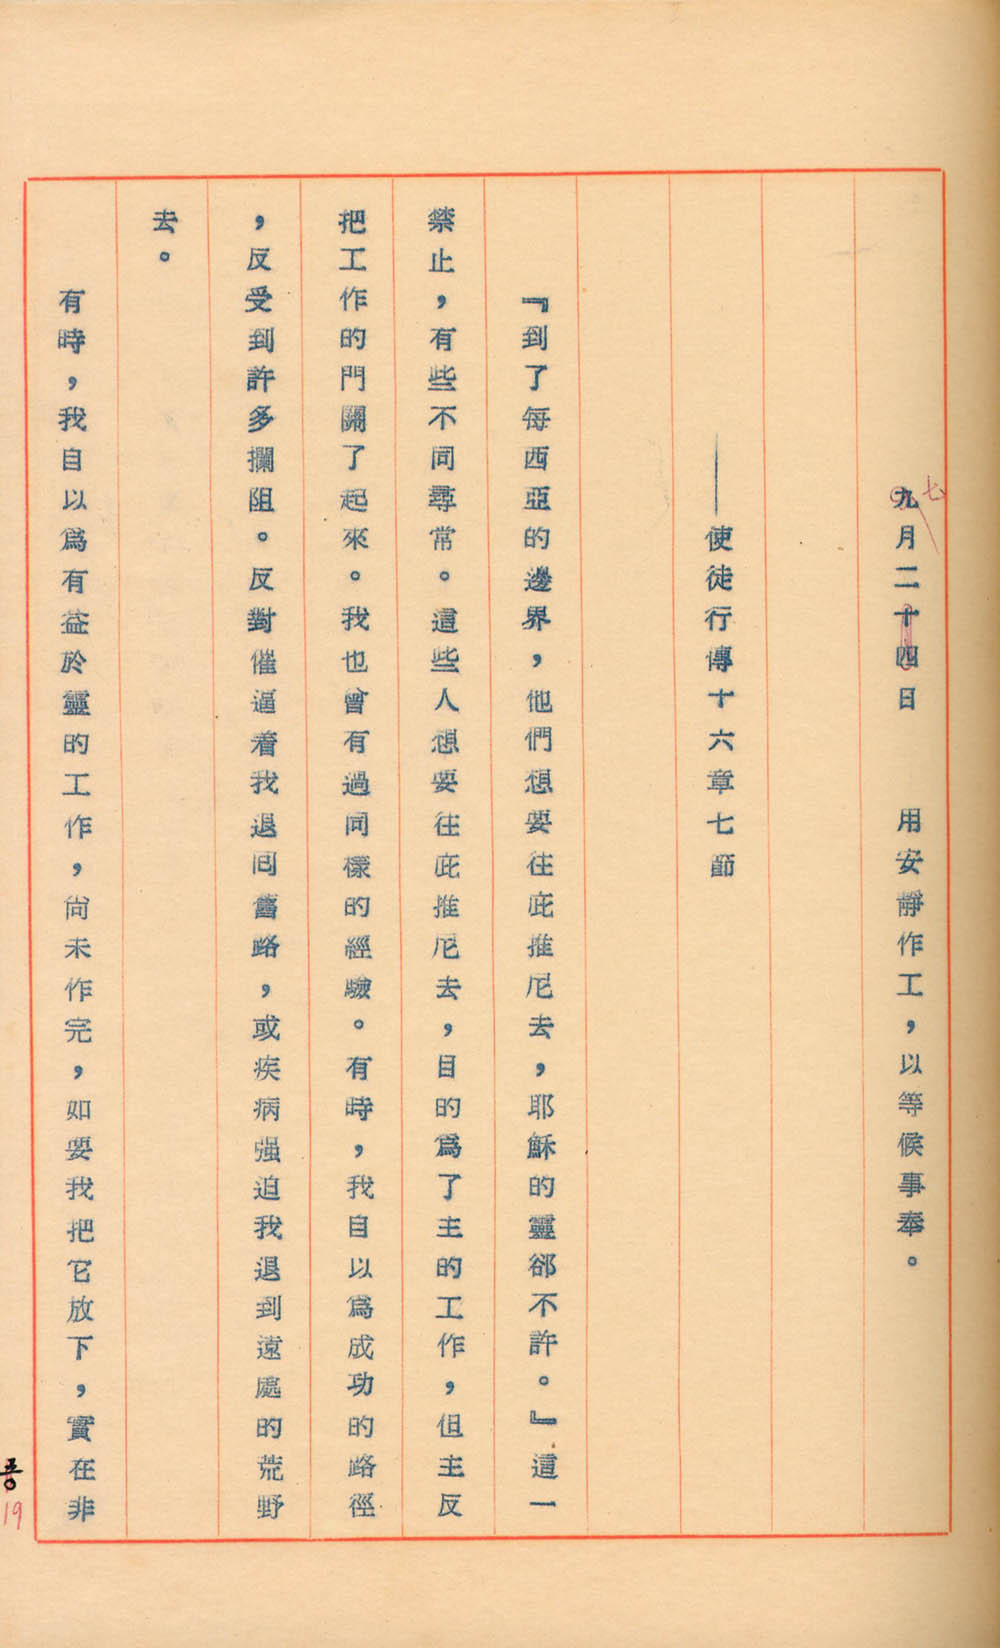 九月二十四日　　用安靜作工，以等候事奉。
七
——使徒行傳十六章七節
『到了每西亞的邊界，他們想要往庇推尼去，耶穌的靈郤不許。』這一
禁止，有些不同尋常。這些人想要往庇推尼去，目的爲了主的工作，但主反
把工作的門關了起來。我也曾有過同樣的經驗。有時，我自以爲成功的路徑
，反受到許多攔阻。反對催逼着我退囘舊路，或疾病强迫我退到遠處的荒野
去。
有時，我自以爲有益於靈的工作，尙未作完，如要我把它放下，實在非
19